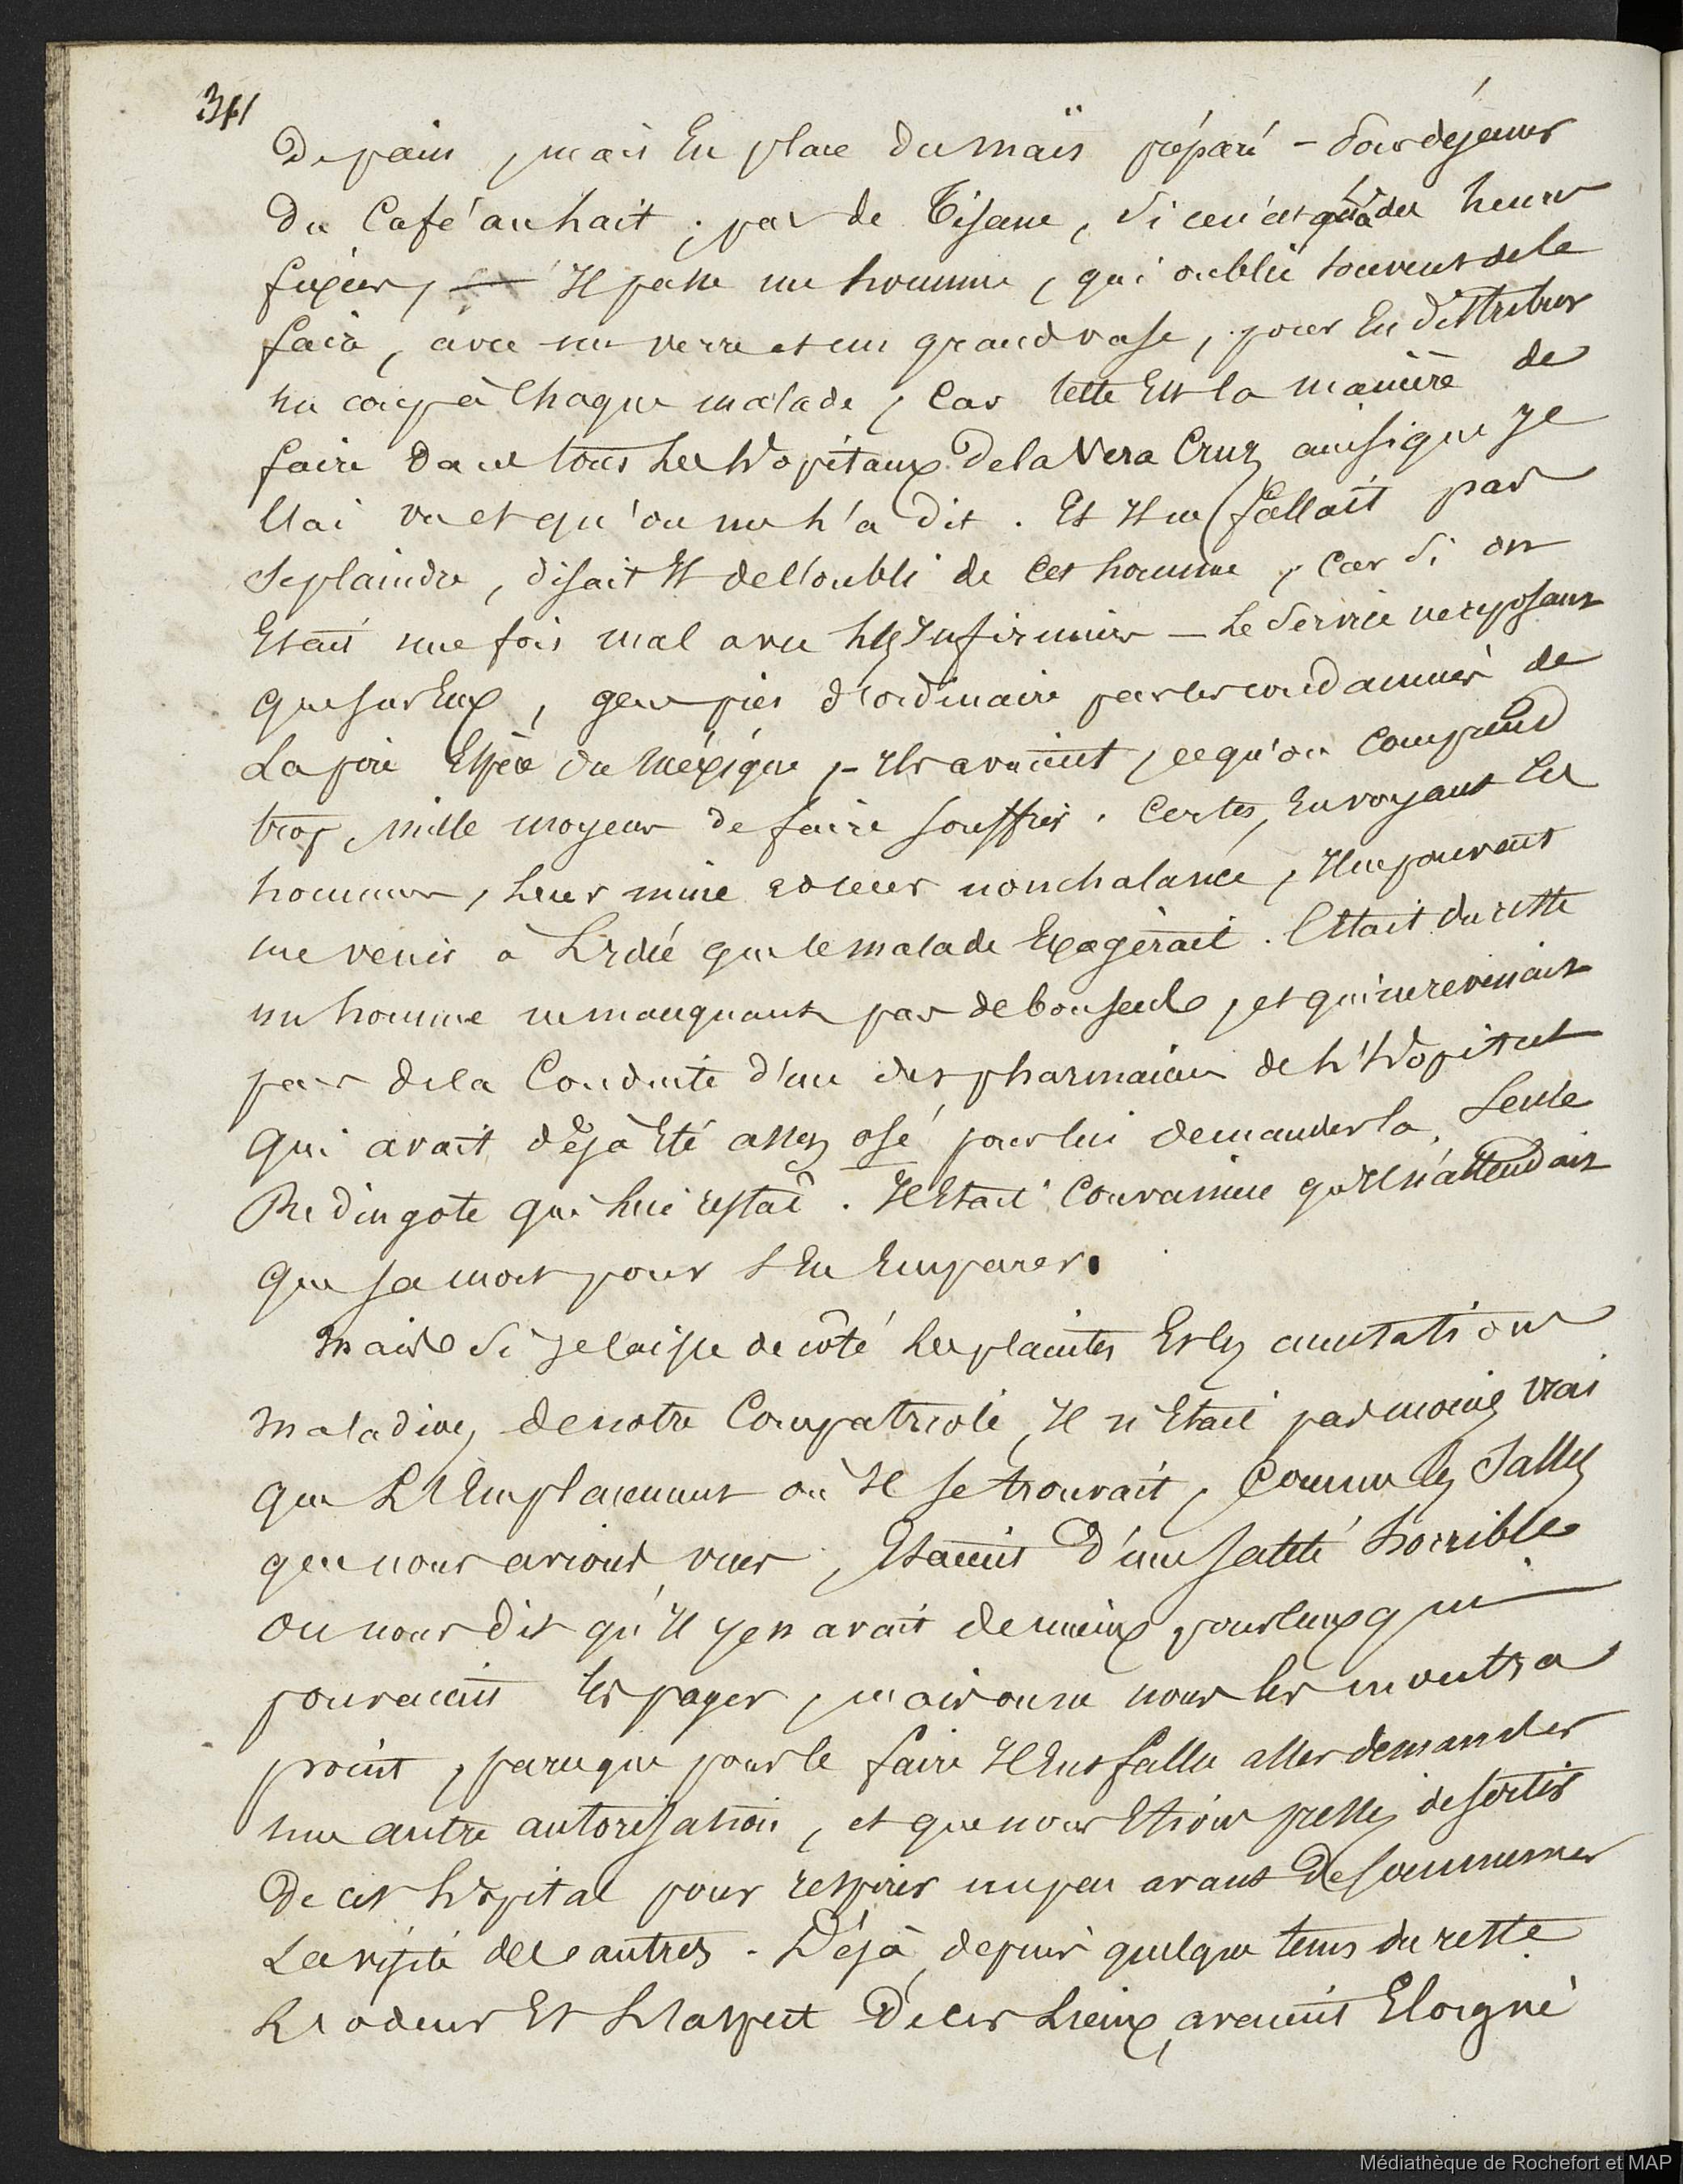 341
De pain, mais En place du maïs préparé - Pour déjeuner
Du Café au lait ; pas de Tisane, si ce n'est qu'à des heures
fixées, Il passe un homme, qui oublie souvent de le
faire, avec un verre et un grand vase, pour En distribuer
un coup à Chaque malade, Car telle Est la manière de
faire dans tous les Hopitaux De la Vera Cruz ainsi que Je
l'ai vu et qu'on me l'a dit. Et Il ne fallait pas
se plaindre, disait Il de l'oubli de Cet homme, Car si on
Etait une fois mal avec les Infirmiers - Le Service ne reposant
que sur Eux, gens pris d'ordinaire parmi les condamnés de
La pire Espèce du Méxique, - Ils avaient, ce qu'on Comprend
trop, mille moyens de faire souffrir. Certes, En voyant Ces
hommes, Leur mine et leur nonchalance, Il ne pouvait
me venir à L'Idée que le malade Exagèrait. C'Etait du reste
un homme ne manquant pas de bon sens, et qui ne revenait
pas de la Conduite d'un des pharmaciens de l'Hopital
qui avait déjà Eté assez osé pour lui demander la Seule
Redingote qui lui restait. Il Etait Convaincu qu'Il n'attendait
que sa mort pour s'En Emparer.
Mais si Je laisse de côté les plaintes Et les
maladives de notre Compatriote, Il n'Etait pas moins vrai
que L'Emplacement où Il se trouvait, Comme les Salles
que nous avions vues, Etaient D'une saleté horrible
On nous dit qu'Il y en avait de mieux pour ceux qui
pouvaient les payer, mais on ne nous les montra
point, parceque pour le faire Il Eut fallu aller demander
une autre autorisation, et que nous Etions pressés de sortir
De cet hopital pour respirer un peu avant De
La visite des autres. Déjà depuis quelque tems du reste
L'odeur Et L'aspect De ces Lieux, avaient Eloigné
Médiathèque de Rochefort et MAP